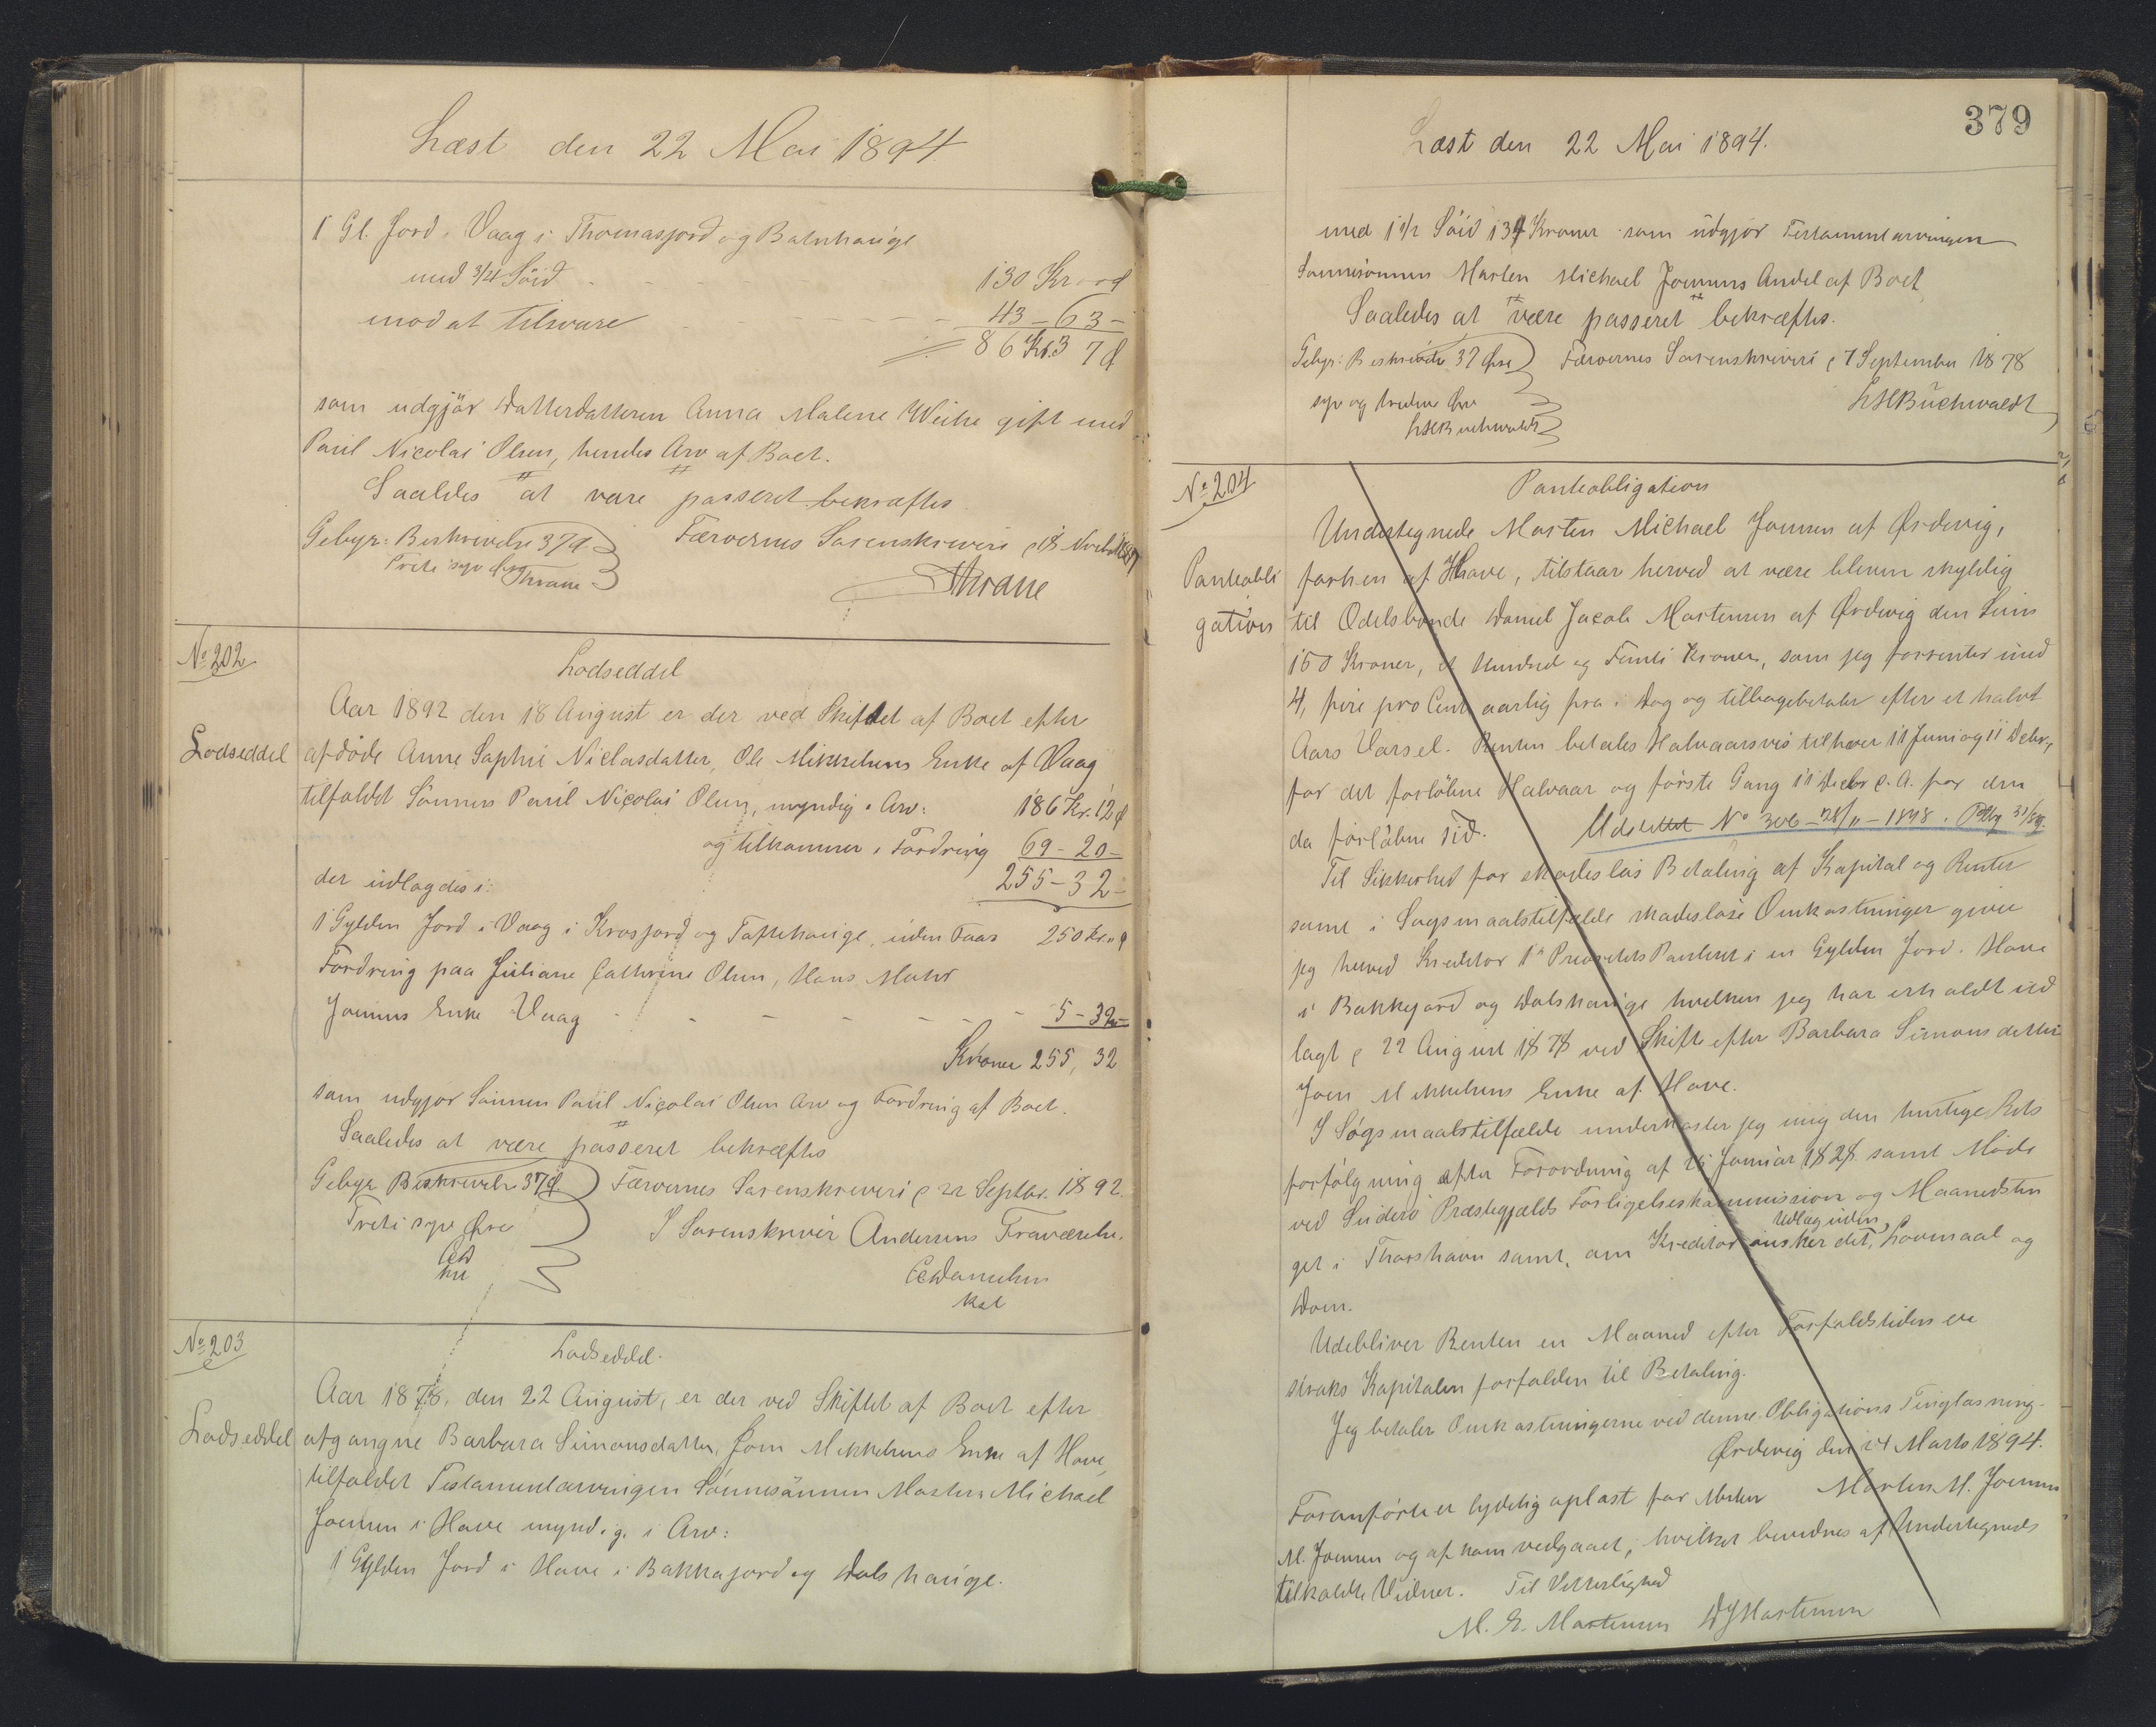 Læst den 22 Mai 1894
1 Gl. Jord i Vaag i Thomasjord og Batnhauge
med 3/4 Söid - - - - 130 Kr
mod at tilsvare - - - - 43 - 63 -
86 Kr. 37 Ø
som udgjör Datterdatteren Anna Malene Weihe gift med
Paul Nicolai Olsen, hendes Arv af Boet.
Saaledes at være passeret bekræftes
Gebyr: Beskrivelse 37 Ø Færoernes Sorenskriveri
Treti syv Øre Thrane
Thrane
No 202
Lodseddel
Lodseddel
Aar 1892 den 18 August er der ved Skiftet af Boet efter
afdöde Anne Sophie Niclasdatter, Ole Mikkelsens Enke af Vaag
tilfaldet Sönnen Paul Nicolai Olsen, myndig i Arv: 186 Kr. 12 Ø
og tilkommer i Fordring 69 - 20 -
der udlagdes i: 255 - 32 -
1 Gylden Jord i Vaag i Krosjord og Toftehauge, uden Faar 250 Kr. " Ø
Fordring paa Juliane Cathrine Olsen, Hans
Joensens Enke Vaag - - - - - 5 - 32 -
Kroner 255, 32
som udgjör Sönnen Paul Nicolai Olsen Arv og Fordring af Boet.
Saaledes at være passeret bekræftes
Gebyr Beskrivelse 37 Ø Færoernes Sorenskriveri p 22 Septbr. 1892.
Treti syv Øre I Sorenskriver Andersens Fraværelse.
CDanielsen
Kst
No 203
Lodseddel.
Lodseddel
Aar 1878, den 22 August, er der ved Skiftet af Boet efter
afgangne Barbara Simonsdatter, Joen Mikkelsens Enke af Hove,
tilfaldet Testamentarvingen Sönnesönnen Morten Michael
Joensen i Hove myndig, i Arv:
1 Gylden Jord i Hove i Bakkajord og Dals hauge.
379
Læst den 22 Mai 1894.
med 1 1/2 Söid 134 Kroner som udgjör Testamentarvingen
Sönnesönnen Morten Michael Joensens Andel af Boet
Saaledes at være passeret bekræftes.
Gebyr: Beskrivelse 37 Øre Færoernes Sorenskriveri p 7 September 1878
syv og tredive Øre HBuchwaldt
HBuchwaldt
No 204
Panteobligation
Panteobligation
Undertegnede Morten Michael Joensen af Ørdevig,
forhen af Hove, tilstaar herved at være bleven skyldig
til Odelsbonde Daniel Jacob Mortensen af Ørdevig den Sum
150 Kroner, et Hundred og Femti Kroner, som jeg forrenter med
4, fire pro Cent aarlig fra i Dag og tilbagebetaler efter et halvt
Aars Varsel. Renten betales Halvaarsvis til hver 11 Juni og 11 Decbr,
for det forløbne Halvaar og første Gang 11 Decbr d. A. for den
da forløbne Tid. Udslettet No 306 - 28/11 - 1898.
Til Sikkerhed for skadeslös Betaling af Kapital og Renter
samt i Sögsmaalstilfælde skadeslöse Omkostninger giver
jeg herved Kreditor 1ste Prioritets Panteret i en Gylden Jord i Hove
i Bakkejord og Dalshauge hvilken jeg har erholdt ud
lagt p 22 August 1878 ved Skifte efter Barbara Simonsdatter
Joen Mikkelsens Enke af Hove.
I Sögsmaalstilfælde underkaster jeg mig den hurtige Rets
forfölgning efter Forordning af 25 Januar 1828 samt Möde
ved Suderö Præstegjælds Forligelseskommission og Maanedstin
get i Thorshavn samt, om Kreditor önsker det, Udlæg uden Lovmaal og
Dom.
Udebliver Renten en Maaned efter Forfaldstiden er
straks Kapitalen forfalden til Betaling.
Jeg betaler Omkostningerne ved denne Obligations Tinglæsning.
Ørdevig den 14 Marts 1894.
Morten M. Joensen
Foranförte er lydelig oplæst for Morten
M. Joensen og af ham vedgaaet, hvilket bevidnes af Undertegnede
tilkaldte Vidner. Til Vitterlighed
M. E. Mortensen DJMortensen